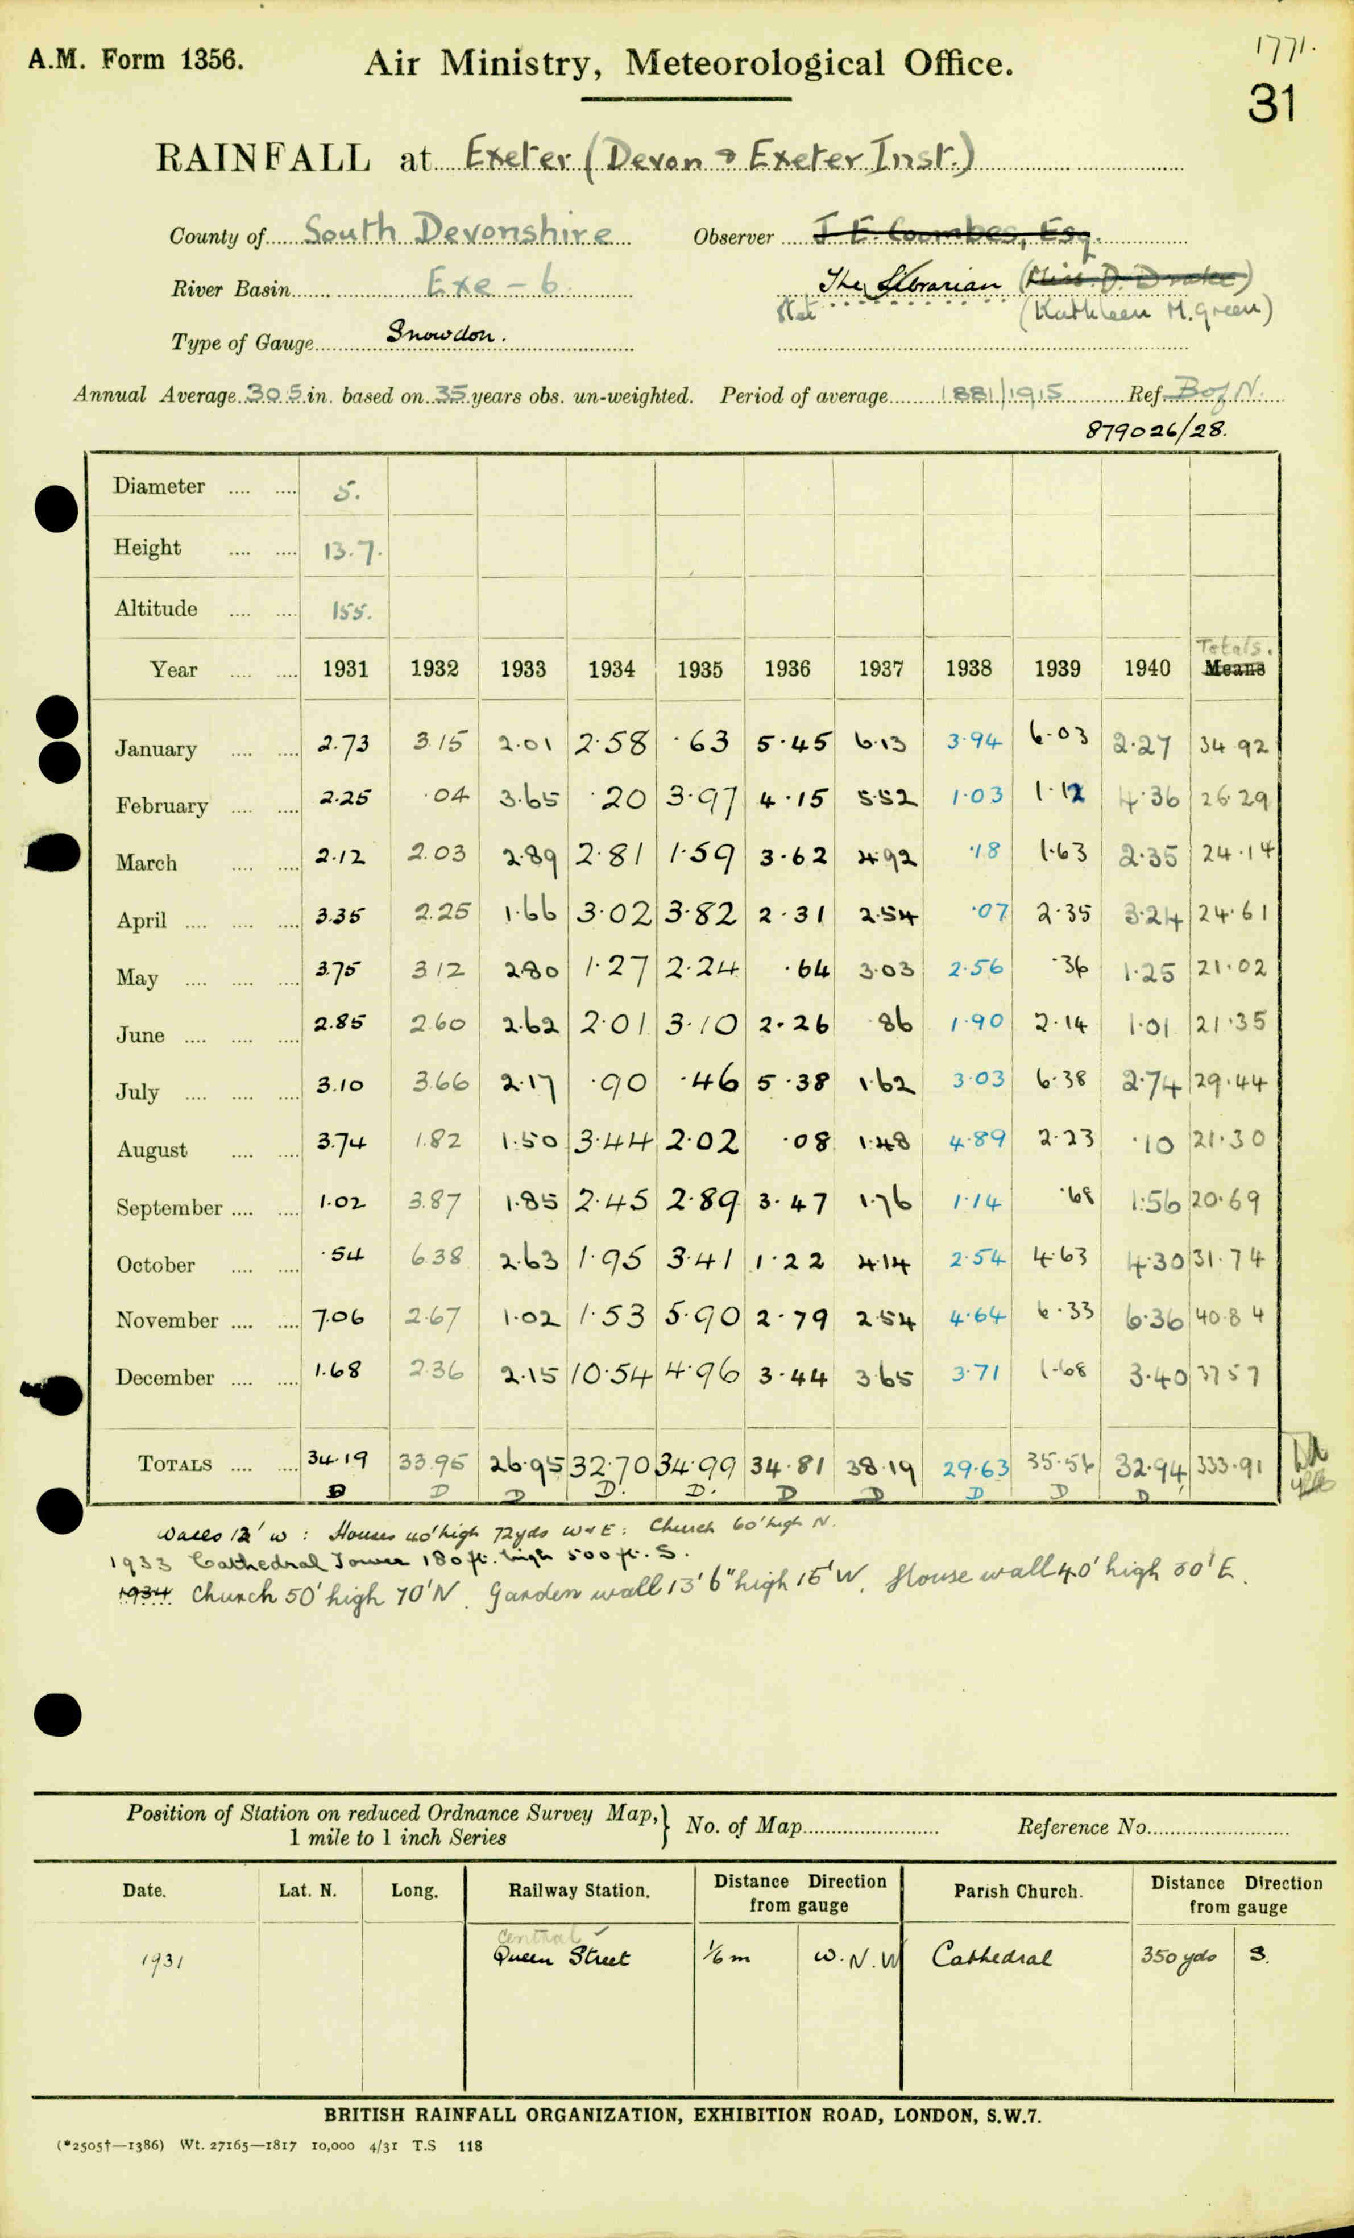 A.M. Form 1356.
Air Ministry, Meteorological Office.
1771.
31
RAINFALL at Exeter (Devon & Exeter Inst.)
County of South Devonshire Observer J. E. Coombes, Esq.
River Basin Exe - 6 The Librarian (Miss. D. Drake)
Stet (Kathleen M. Green)
Type of Gauge Snowdon.
Annual Average 30.5 in. based on 35 years obs. un-weighted. Period of average 1881/1915 Ref. B of N.
879026/28.
Diameter .... .... 5.
Height .... .... 13.7.
Altitude .... .... 155.
Totals.
Year .... .... 1931 1932 1933 1934 1935 1936 1937 1938 1939 1940 Means
January .... .... 2.73 3.15 2.01 2.58 .63 5.45 6.13 3.94 6.03 2.27 34.92
February .... .... 2.25 .04 3.65 .20 3.97 4.15 5.52 1.03 1.12 4.36 26.29
March .... .... 2.12 2.03 2.89 2.81 1.59 3.62 4.92 .18 1.63 2.35 24.14
April .... .... .... 3.35 2.25 1.66 3.02 3.82 2.31 2.54 .07 2.35 3.24 24.61
May .... .... .... 3.75 3.12 2.80 1.27 2.24 .64 3.03 2.56 .36 1.25 21.02
June .... .... .... 2.85 2.60 2.62 2.01 3.10 2.26 .86 1.90 2.14 1.01 21.35
July .... .... .... 3.10 3.66 2.17 .90 .46 5.38 1.62 3.03 6.38 2.74 29.44
August .... .... 3.74 1.82 1.50 3.44 2.02 .08 1.48 4.89 2.23 .10 21.30
September .... .... 1.02 3.87 1.85 2.45 2.89 3.47 1.76 1.14 .68 1.56 20.69
October .... .... .54 6.38 2.63 1.95 3.41 1.22 4.14 2.54 4.63 4.30 31.74
November .... .... 7.06 2.67 1.02 1.53 5.90 2.79 2.54 4.64 6.33 6.36 40.84
December .... .... 1.68 2.36 2.15 10.54 4.96 3.44 3.65 3.71 1.68 3.40 37.57
TOTALS .... .... 34.19 33.95 26.95 32.70 34.99 34.81 38.19 29.63 35.56 32.94 333.91
D D D D. D. D D D D D
Walls 12' W : Houses 40' high 72yds W & E : Church 60' high N.
1933 Cathedral Tower 180 ft. high 500 ft. S.
1934 Church 50' high 70' N. Garden wall 13' 6" high 15' W. House wall 40' high 50' E.
Position of Station on reduced Ordnance Survey Map,
1 mile to 1 inch Series
No. of Map
Reference No.
Date. Lat. N. Long. Railway Station. Distance from gauge Direction Parish Church. Distance from gauge Direction
Central
1931 Queen Street 1/6 m W.N.W Cathedral 350 yds S.
BRITISH RAINFALL ORGANIZATION, EXHIBITION ROAD, LONDON, S.W.7.
(*2505†—1386) Wt. 27165—1817 10,000 4/31 T.S 118